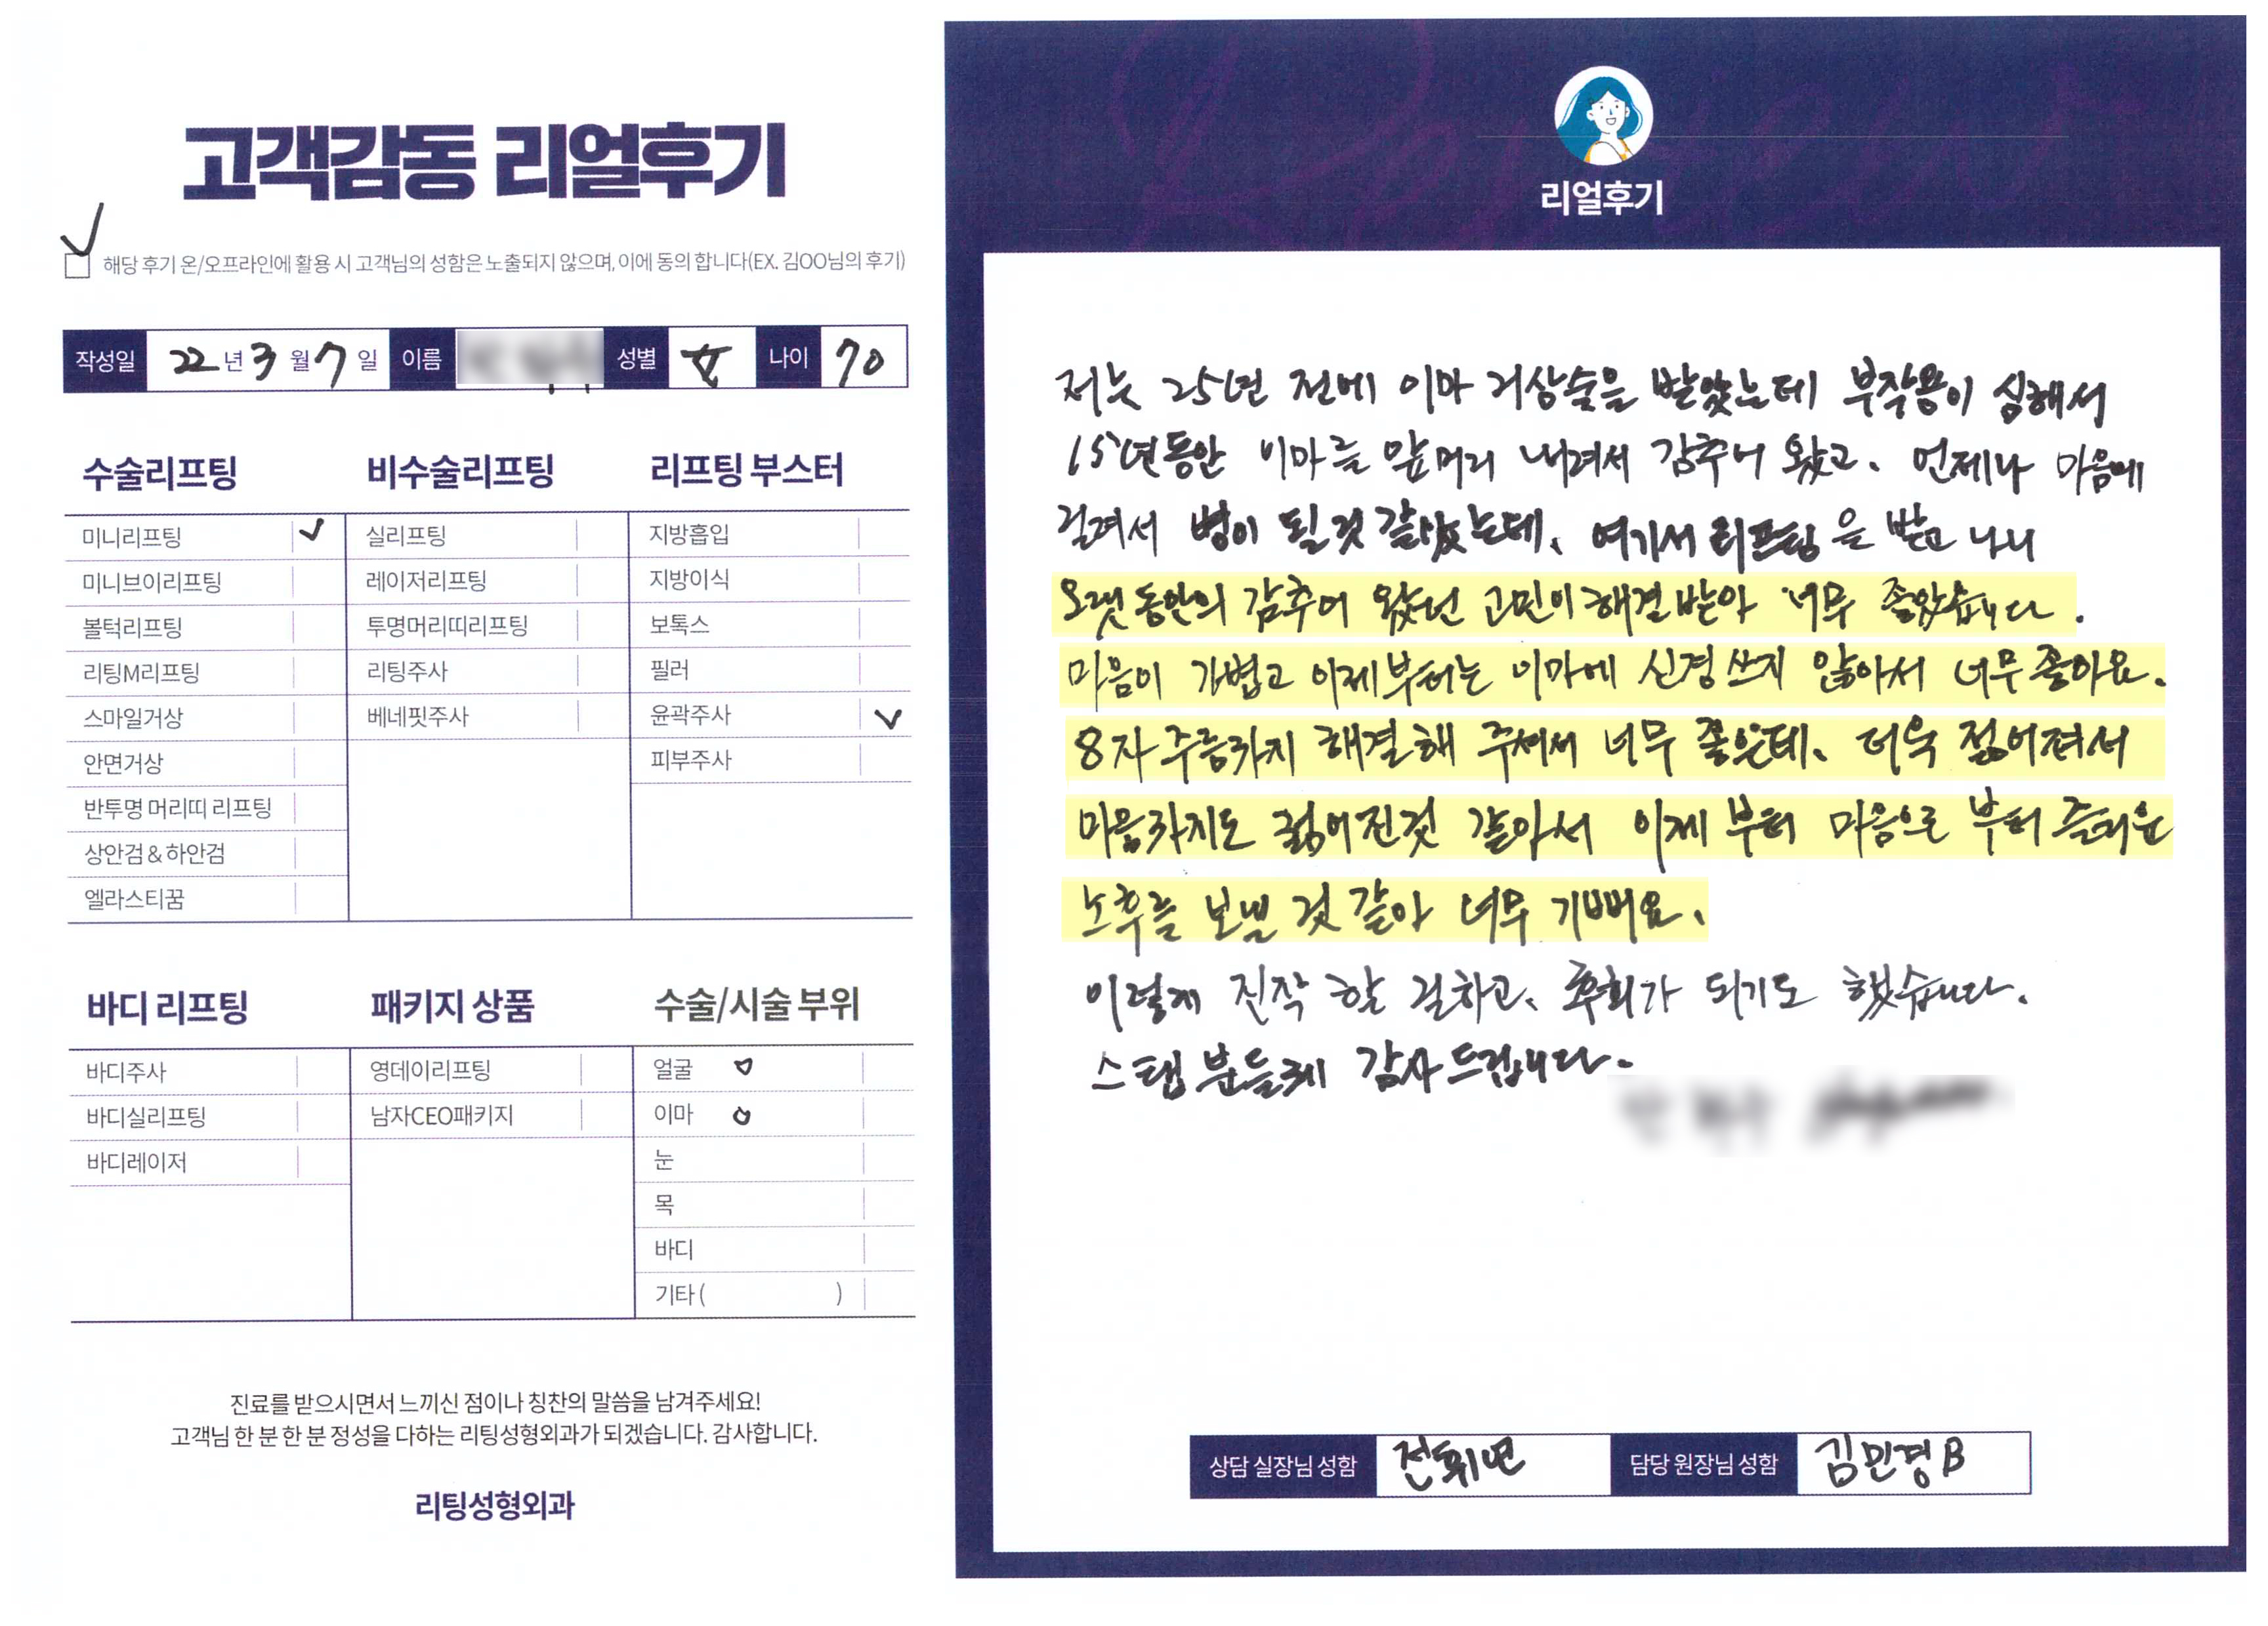 고객감동 리얼후기
해당 후기 온/오프라인에 활용 시 고객님의 성함은 노출되지 않으며, 이에 동의 합니다(EX. 김OO님의 후기)
작성일 22년 3월 7일 이름 성별 女 나이 70
수술리프팅
미니리프팅
미니브이리프팅
볼턱리프팅
리팅M리프팅
스마일거상
안면거상
반투명 머리띠 리프팅
상안검 & 하안검
엘라스티꿈
비수술리프팅
실리프팅
레이저리프팅
투명머리띠리프팅
리팅주사
베네핏주사
리프팅 부스터
지방흡입
지방이식
보톡스
필러
윤곽주사
피부주사
바디 리프팅
바디주사
바디실리프팅
바디레이저
패키지 상품
영데이리프팅
남자CEO패키지
수술/시술 부위
얼굴
이마
눈
목
바디
기타 ( )
진료를 받으시면서 느끼신 점이나 칭찬의 말씀을 남겨주세요!
고객님 한 분 한 분 정성을 다하는 리팅성형외과가 되겠습니다. 감사합니다.
리팅성형외과
리얼후기
저는 25년 전에 이마 거상술을 받았는데 부작용이 심해서
15년동안 이마를 앞머리 내려서 감추어 왔고. 언제나 마음에
걸려서 병이 될것 같았는데. 여기서 리프팅을 받고 나니
오랫동안의 감추어 왔던 고민이 해결받아 너무 좋았습니다.
마음이 가볍고 이제부터는 이마에 신경쓰지 않아서 너무좋아요.
8자주름까지 해결해 주셔서 너무 좋은데. 더욱 젊어져서
마음까지도 젊어진것 같아서 이제부터 마음으로 부터 즐거운
노후를 보낼 것 같아 너무 기뻐요.
이렇게 진작 할 걸하고. 후회가 되기도 했습니다.
스탭분들께 감사드립니다.
상담 실장님 성함 전휘연 담당 원장님 성함 김민경B